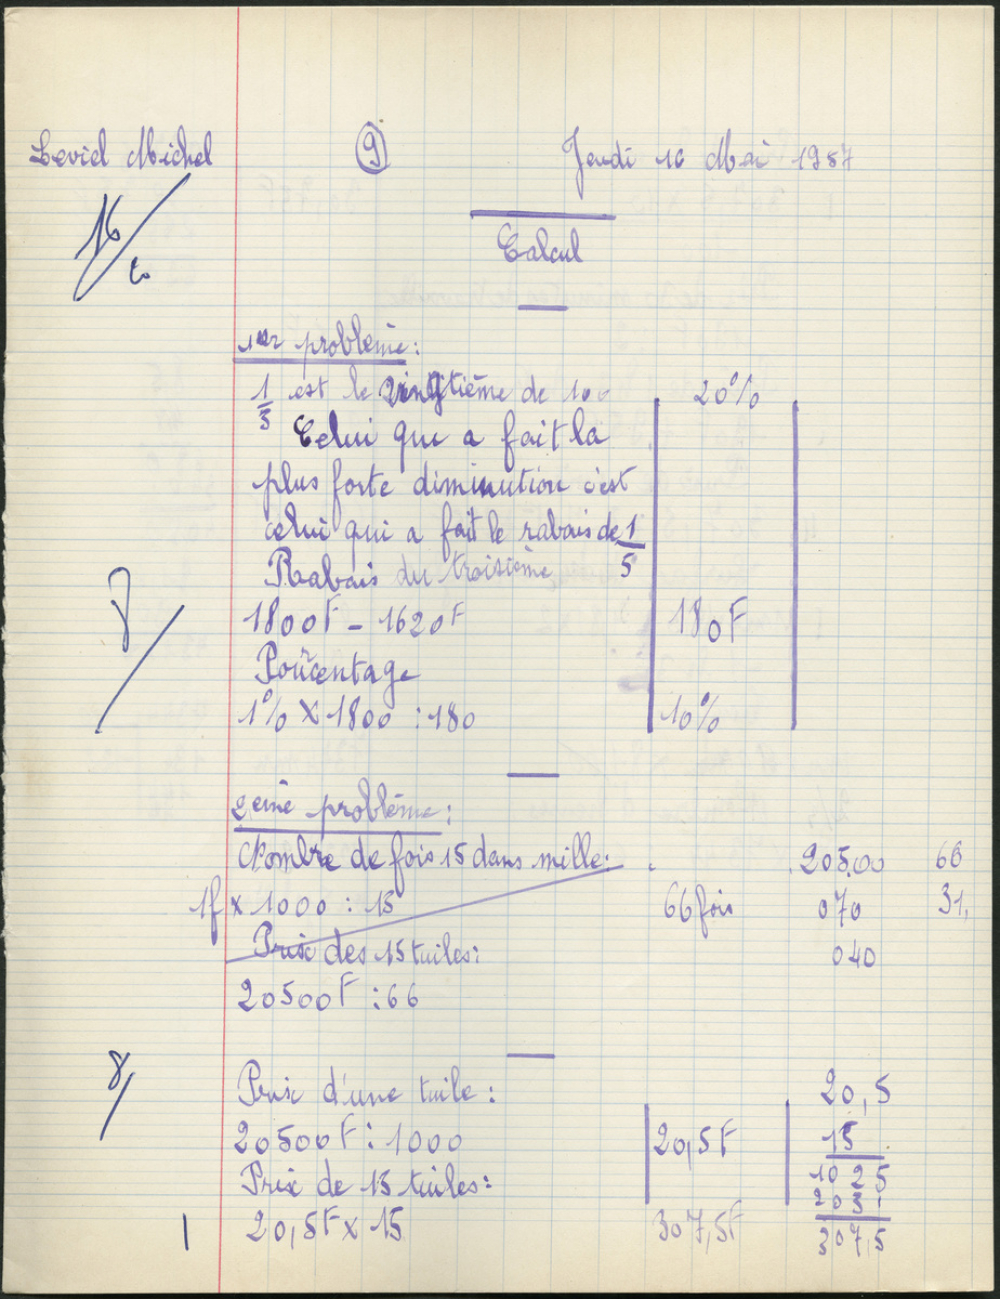 Leviel Michel 9 Jeudi 16 Mai 1957
16/
Calcul
1er problème:
1/5 est le vingtième de 100 20%
Celui que a fait la
plus forte diminution c'est
celui qui a fait le rabais de 1/5
Rabais du troisième
1800F - 1620F 180F
8/
Pourcentage
1% X 1800 : 180 10%
2eme problème:
Nombre de fois 15 dans mille: 205.00 66
1f x 1000 : 15 66 fois 070 31,
Prix des 15 tuiles: 040
20500F : 66
8/
Prix d'une tuile: 20,5
20500F : 1000 20,5F 15
Prix de 15 tuiles: 1025
205
20,5F x 15 307,5F 307,5